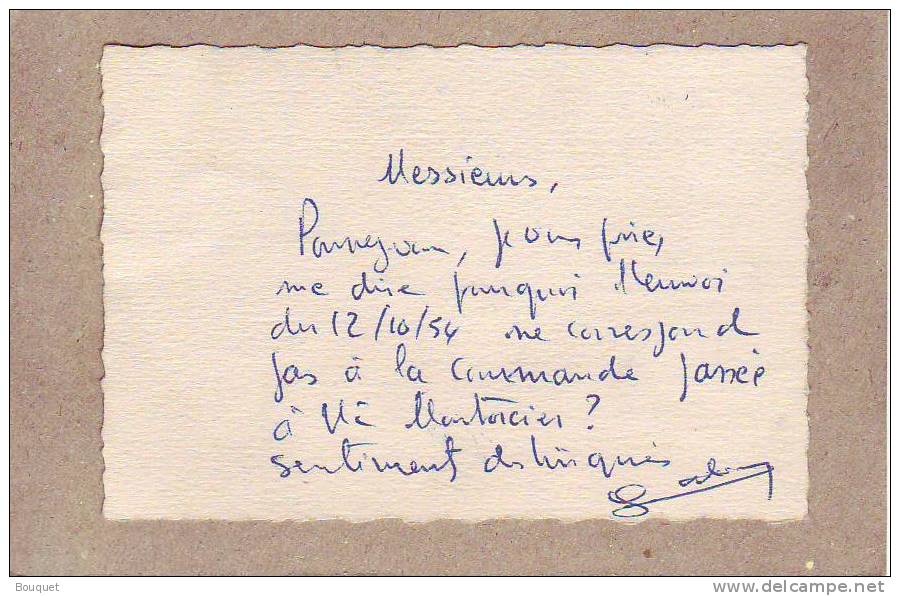 Messieurs,
Pourriez-vous, je vous prie,
me dire pourquoi l'envoi
du 12/10/54 ne correspond
pas à la commande passée
à Mr
sentiments distingués
Bouquet
delcampe.net